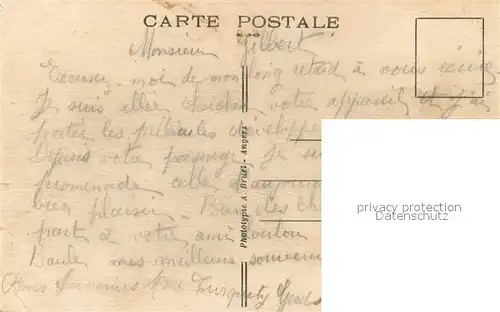 CARTE POSTALE
Monsieur Gilbert
Excusez-moi de mon long retard à vous écrire
Je suis allée chercher votre appareil et j'ai
porter les pellicules développe
Depuis votre passage Je su
promenade celle d'aujourd
bien plaisir. Bien des ch
part a votre ami
Baule mes meilleurs souveni
Bons Souvenirs
Phototypie A. Bruel - Angers
privacy protection
Datenschutz